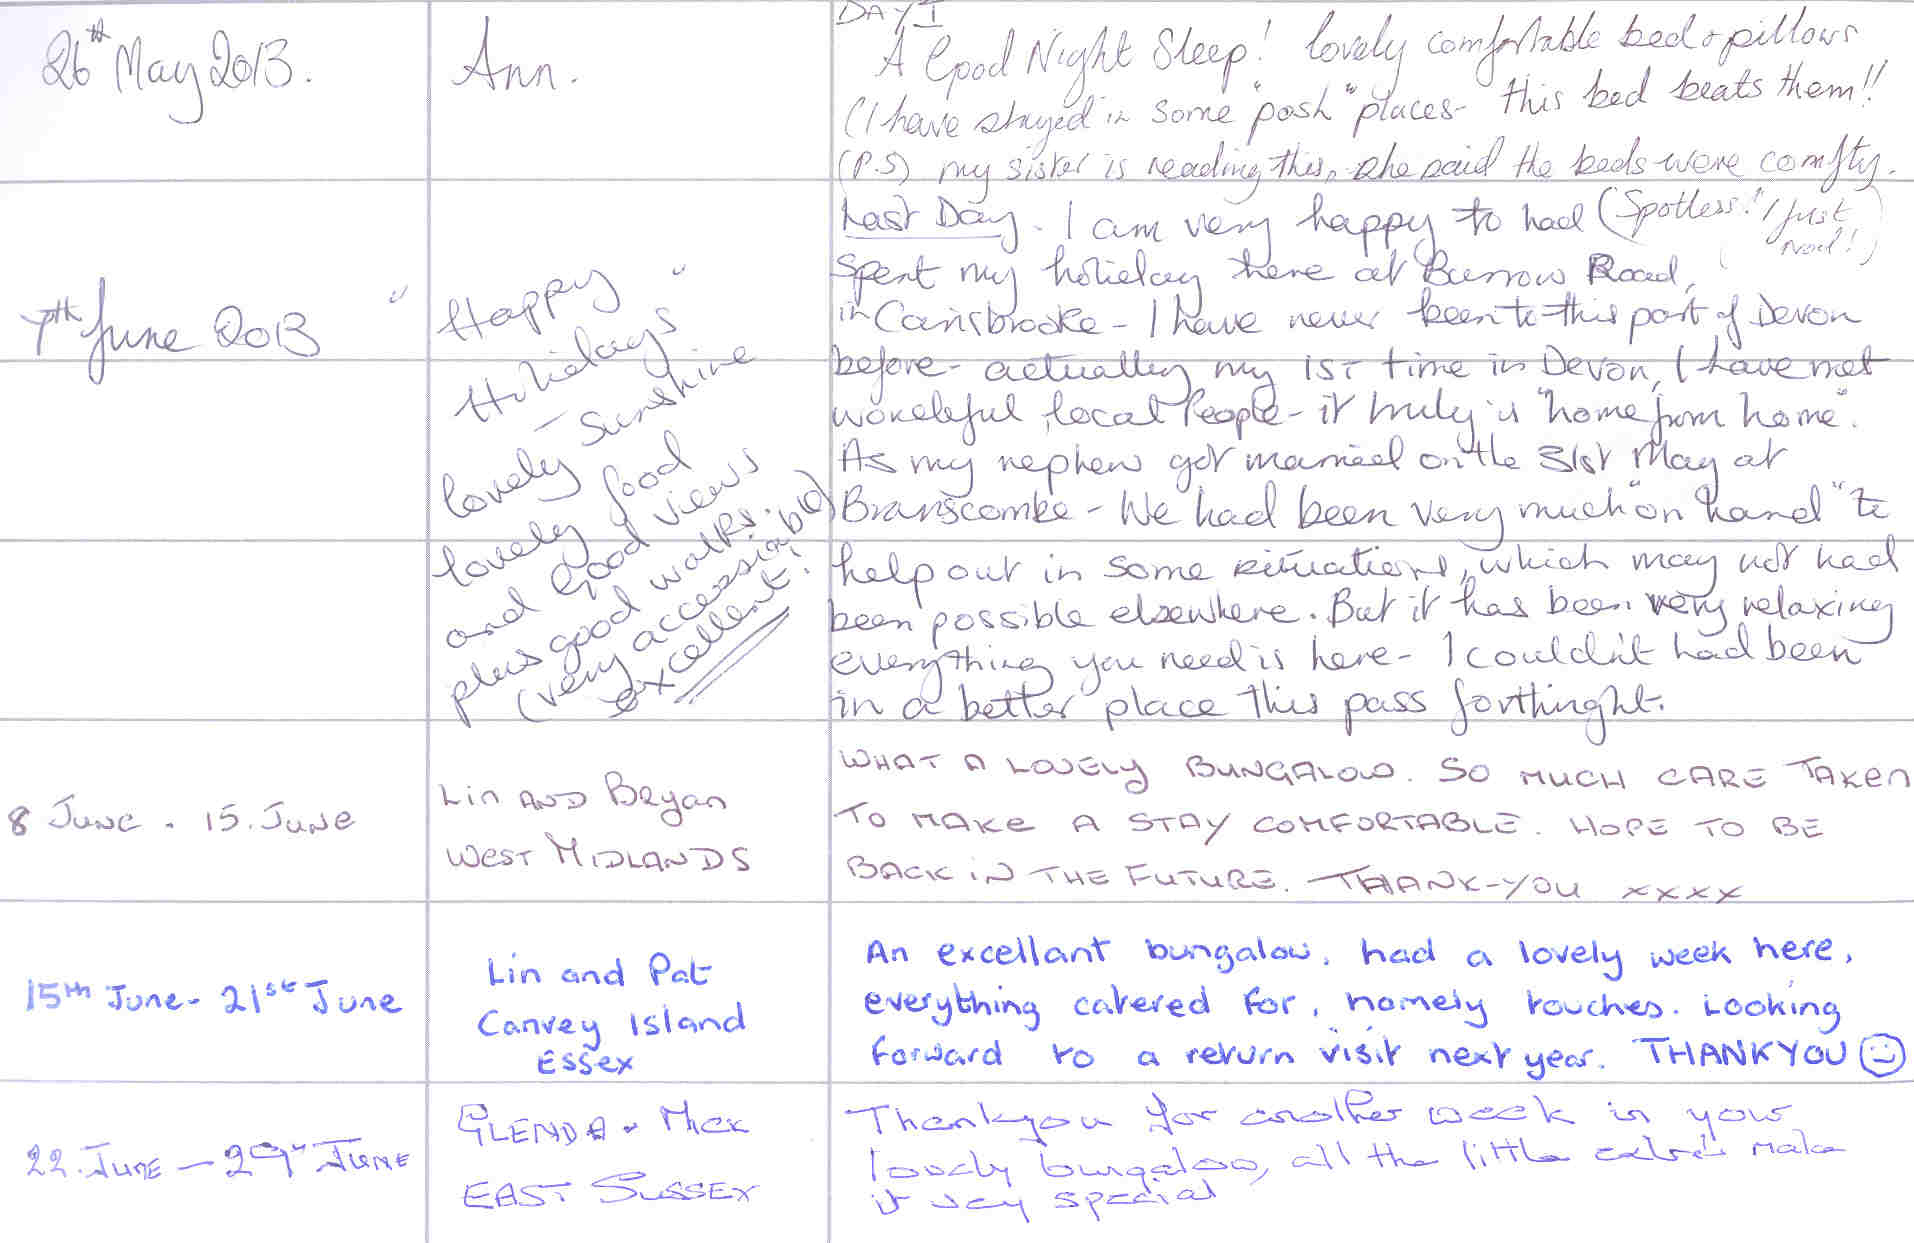 26th May 2013.
Ann.
DAY 1
A Good Night Sleep! lovely comfortable bed & pillows
(I have stayed in some "posh" places - this bed beats them!!
(P.S) my sister is reading this, she said the beds were comfty.
7th June 2013
"Happy
Holidays"
- Sunshine
lovely food
lovely
and Good views
plus good walks.
(very accessiable)
excellent!
Last Day. I am very happy to had (Spotless!" I just
spent my holiday here at Burrow Road,
in Carisbrooke - I have never been to this part of Devon
before - actually my 1st time in Devon, I have met
wondeful, local People - it truly is "home from home".
As my nephew got married on the 31st May at
Branscombe - We had been very much "on hand" to
help out in some situations, which may not had
been possible elsewhere. But it has been very relaxing
everything you need is here - I couldn't had been
in a better place this pass forthinght.
8 June - 15. June
Lin AND Bryan
WEST MIDLANDS
WHAT A LOVELY BUNGALOW. SO MUCH CARE TAKEN
TO MAKE A STAY COMFORTABLE. HOPE TO BE
BACK IN THE FUTURE. THANK-YOU xxxx
15th June - 21st June
Lin and Pat
Canvey Island
Essex
An excellant bungalow, had a lovely week here,
everything catered for, homely touches. Looking
forward to a return visit next year. THANKYOU ☺
22. JUNE - 29th JUNE
GLENDA & MICK
EAST SUSSEX
Thankyou for another week in your
lovely bungalow, all the little extra's make
it very special